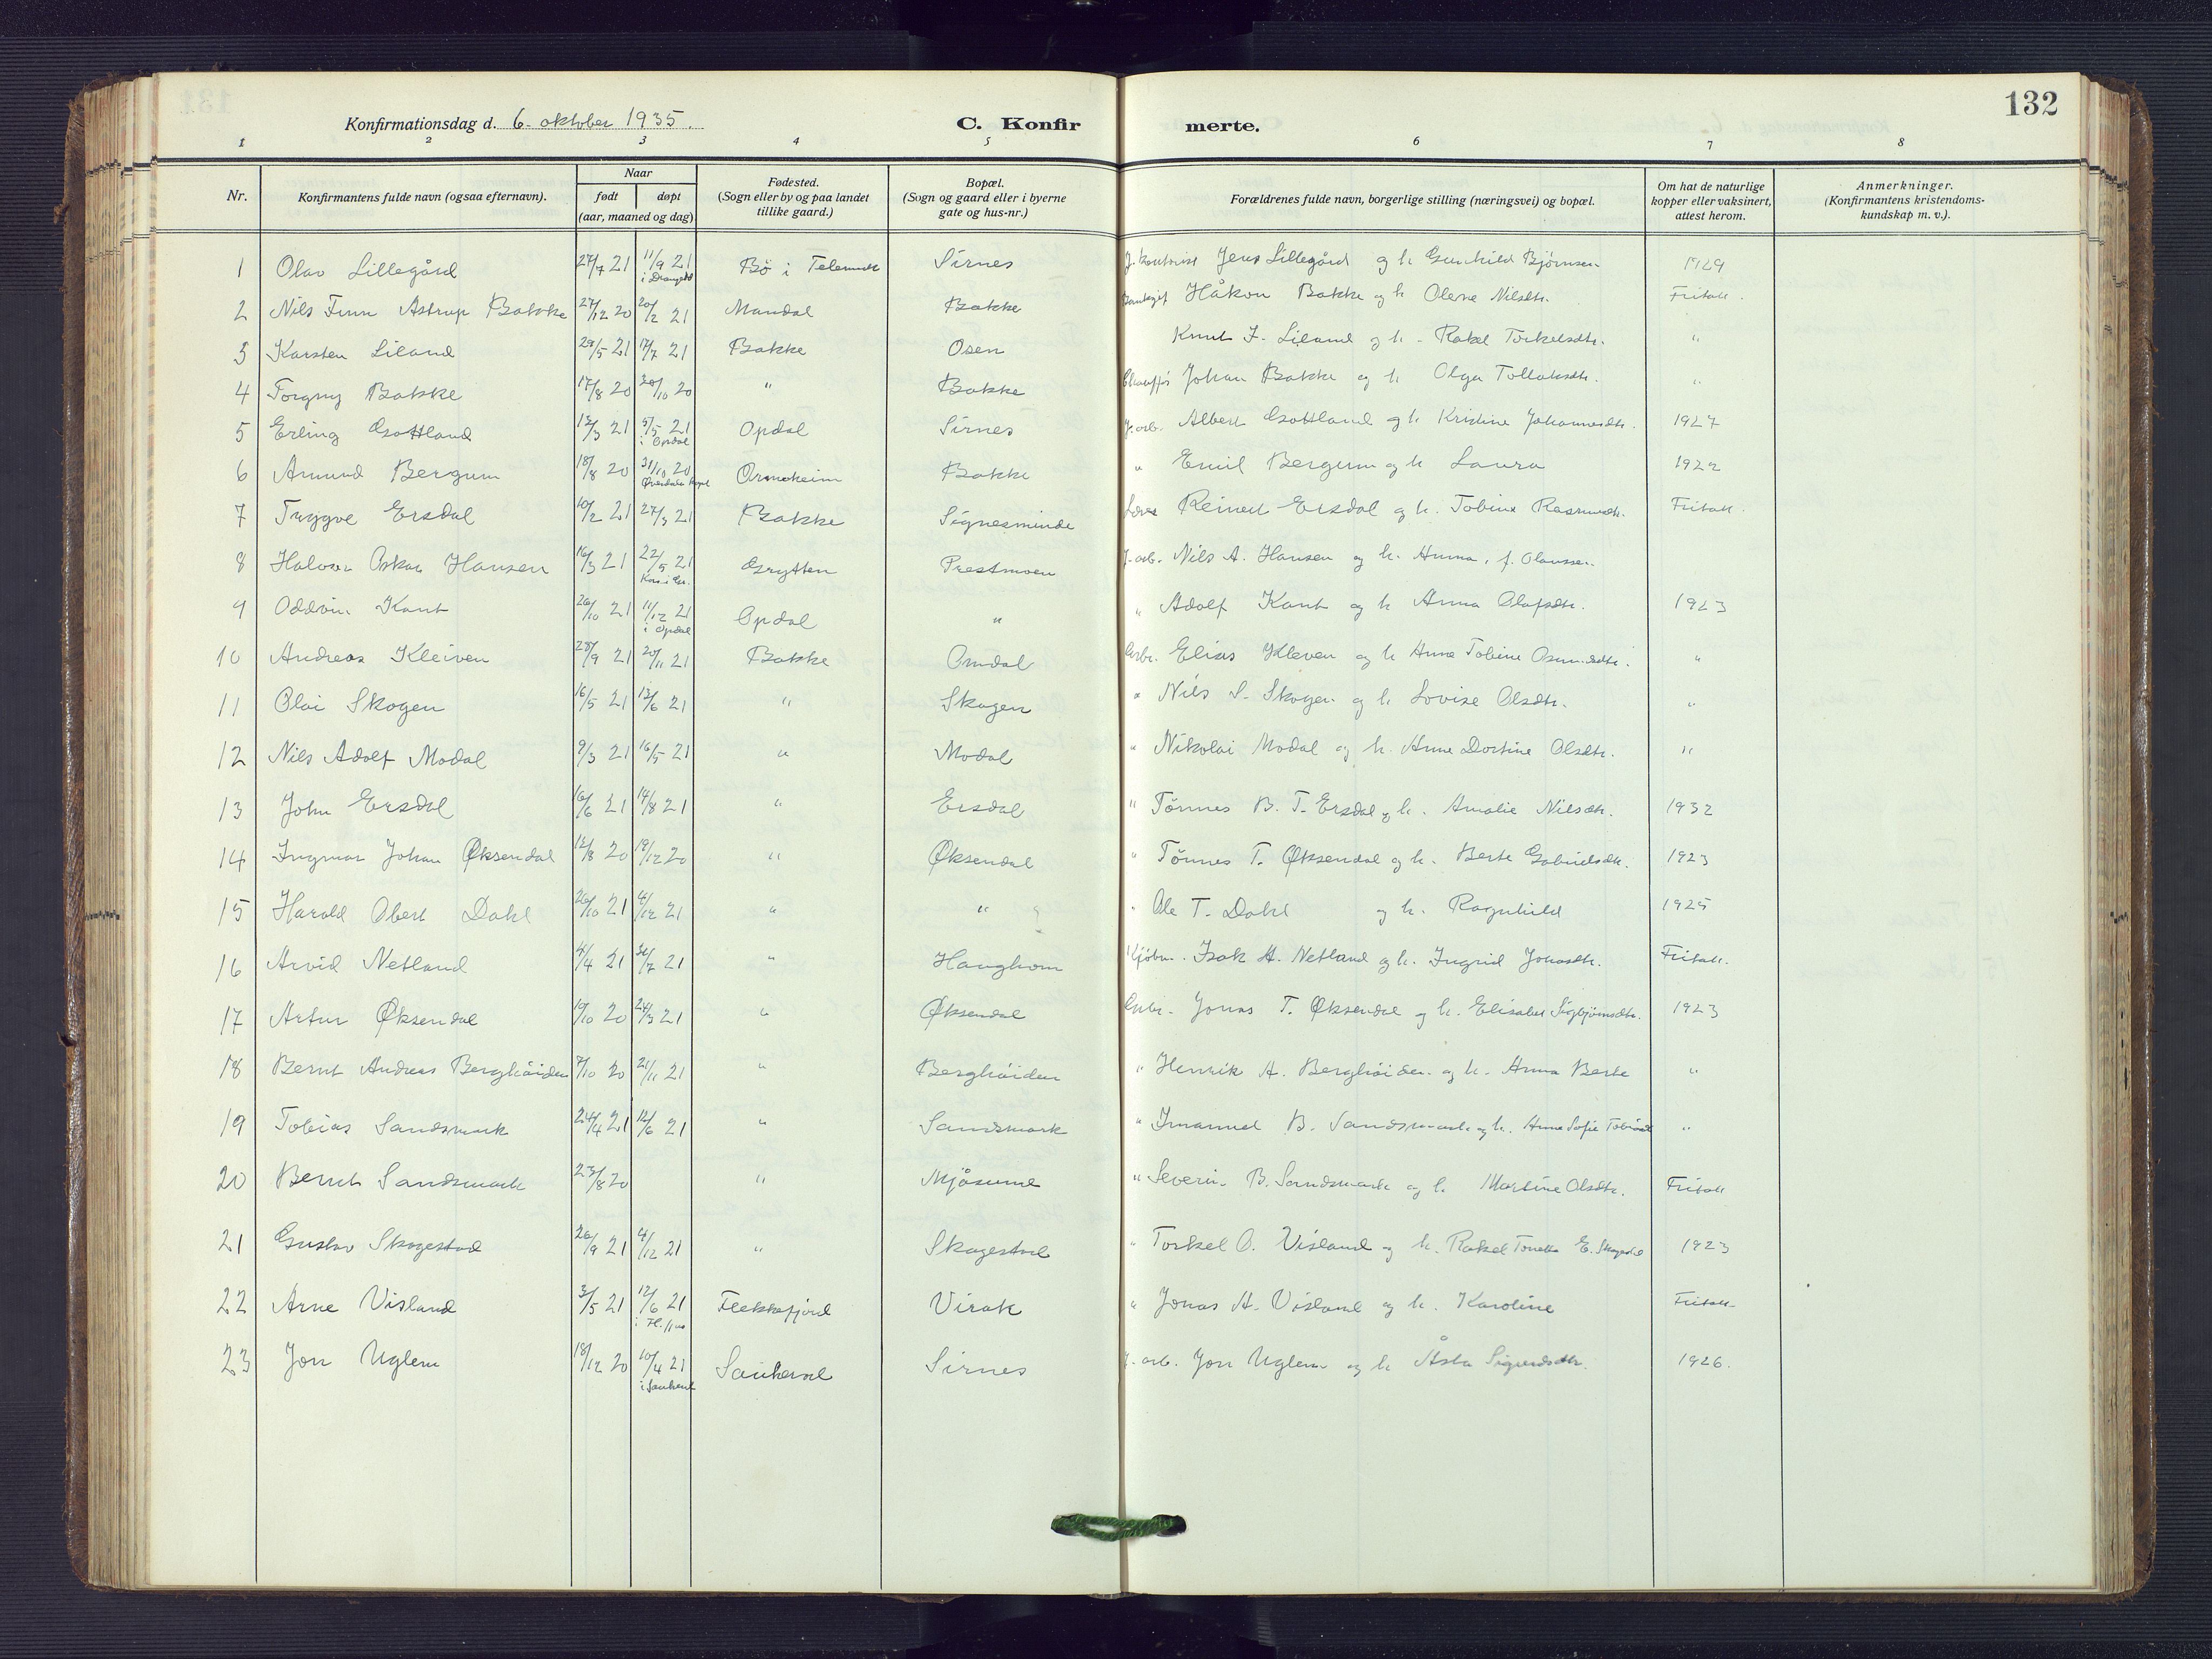 132
Konfirmationsdag d. 6. oktober 1935.
C. Konfirmerte.
1 2 3 4 5 6 7 8
Nr.
Konfirmantens fulde navn (ogsaa efternavn).
Naar
født
døpt
(aar, maaned og dag)
Fødested.
(Sogn eller by og paa landet
tillike gaard.)
Bopæl.
(Sogn og gaard eller i byerne
gate og hus-nr.)
Forældrenes fulde navn, borgerlige stilling (næringsvei) og bopæl.
Om hat de naturlige
kopper eller vaksinert,
attest herom.
Anmerkninger.
(Konfirmantens kristendoms-
kundskap m. v.).
1 Olav Lillegård 27/7 21 11/9 21 i Drangedl Bö i Telemark Sirnes J. kontorist Jens Lillegård og h. Gunhild Björnsen 1929
2 Nils Finn Astrup Bakke 27/12 20 20/2 21 Mandal Bakke Håkon Bakke og h. Olene Nilsdtr. Fritatt.
3 Karsten Liland 29/5 21 17/7 21 Bakke Osen Knut I. Liland og h. Rakel Torkelsdtr. "
4 Torgny Bakke 17/8 20 20/10 20 " Bakke Chauffør Johan Bakke og h. Olga Tollaksdtr. "
5 Erling Gottland 12/3 21 5/5 21 i Opdal Opdal Sirnes J. arb. Albert Gottland og h. Kristine Johannesdtr. 1927
6 Amund Bergum 18/8 20 31/10 20 Ormeheim Bakke " Emil Bergum og h. Laura 1922
7 Tryggve Ersdal 10/2 21 27/3 21 Bakke Signesminde Lærer Reinert Ersdal og h. Tobine Rasmusdtr. Fritatt.
8 Halvor Oskar Hansen 16/3 21 22/5 21 Grytten Prestmoen J. arb. Nils A. Hansen og h. Anna, f. Olaussen
9 Oddvin Kant 26/10 21 11/12 21 i Opdal Opdal " " Adolf Kant og h. Anna Olafsdtr. 1923
10 Andreas Kleiven 28/9 21 20/11 21 Bakke Omdal Grbr. Elias Kleven og h. Anne Tobine Osmundsdtr. "
11 Olai Skogen 16/5 21 12/6 21 " Skogen " Nils S. Skogen og h. Lovise Olsdtr. "
12 Nils Adolf Modal 9/3 21 16/5 21 " Modal " Nikolai Modal og h. Anne Dortine Olsdtr. "
13 John Ersdal 16/6 21 14/8 21 " Ersdal " Tönnes B. T. Ersdal og h. Amalie Nilsdtr. 1932
14 Ingmar Johan Øksendal 12/8 20 19/12 20 " Øksendal " Tönnes T. Øksendal og h. Berte Gabrielsdtr. 1923
15 Harald Obert Dahl 26/10 21 4/12 21 " " " Ole T. Dahl og h. Ragnhild 1925
16 Arvid Netland 4/4 21 31/7 21 " Haughom Kjöbm. Isak A. Netland og h. Ingrid Jonasdtr. Fritatt.
17 Artur Øksendal 19/10 20 24/3 21 " Øksendal Grbr. Jonas T. Øksendal og h. Elisabet Sigbjörnsdtr. 1923
18 Bernt Andreas Berghöiden 7/10 20 21/11 21 " Berghöiden " Henrik A. Berghöiden og h. Anna Berte "
19 Tobias Sandsmark 24/4 21 12/6 21 " Sandsmark " Imanuel B. Sandsmark og h. Anne Sofie Tobiasdt "
20 Bernt Sandsmark 23/8 20 " Mjåsund " Severin B. Sandsmark og h. Martine Olsdtr. Fritatt
21 Gustav Skagestad 26/9 21 4/12 21 " Skagestad " Torkel O. Visland og h. Rakel Tonette E. Skagestad 1923
22 Arne Visland 3/5 21 12/6 21 Flekkefjord Virak " Jonas A. Visland og h. Karoline Fritatt.
23 Jon Uglem 18/12 20 10/4 21 i Sauherad Sauherad Sirnes J. arb. Jon Uglem og h. Åsta Sigurdsdtr. 1926.